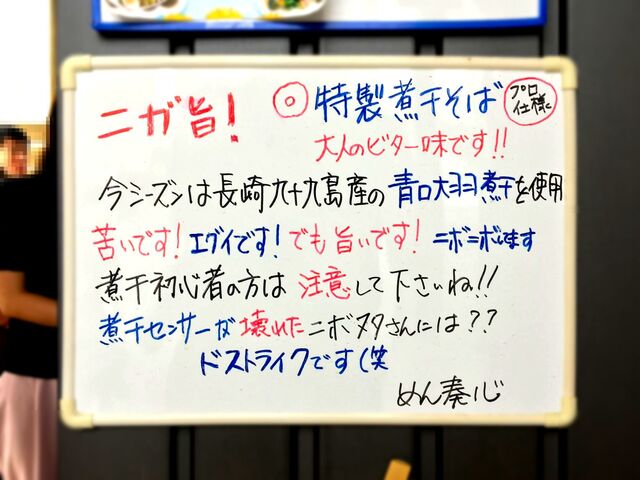 ニガ旨!
◎特製煮干そば
プロ
仕様
大人のビター味です!!
今シーズンは長崎九十九島産の青口大羽煮干を使用
苦いです!エグイです!でも旨いです!ニボニボします
煮干初心者の方は注意して下さいね!!
煮干センサーが壊れたニボヌタさんには??
ドストライクです(笑
めん奏心